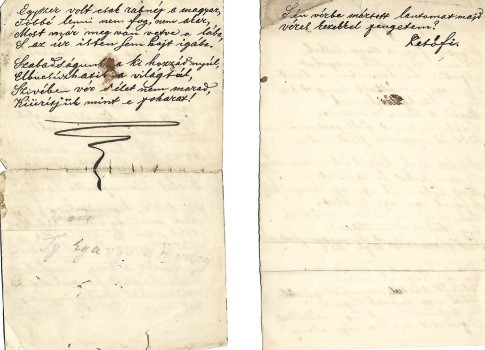 Egyszer volt csak rabnép a magyar,
Többé lenni nem fog, nem akar,
Most már meg van vetve a lába,
S az úr isten sem hajt igába.
Szabadságunk, a ki hozzád nyúl,
Elbúcsúzhatik a világtúl,
Szivében vér s élet nem marad,
Kiüritjük mint e poharat!
S én vérbe mártott lantomat majd
véres kezekkel pengetem!
Petőfi.